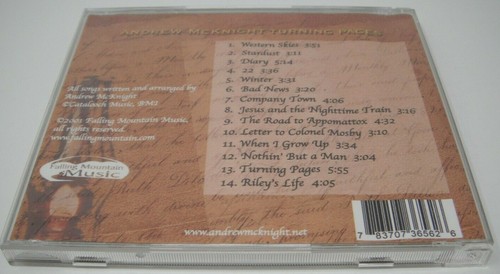 ANDREW MCKNIGHT TURNING PAGES
1. Western Skies 3:51
2. Stardust 3:11
3. Diary 5:14
4. 22 3:36
5. Winter 3:31
6. Bad News 3:20
7. Company Town 4:06
8. Jesus and the Nighttime Train 3:16
9. The Road to Appomattox 4:32
10. Letter to Colonel Mosby 3:10
11. When I Grow Up 3:34
12. Nothin' But a Man 3:04
13. Turning Pages 5:55
14. Riley's Life 4:05
All songs written and arranged by
Andrew McKnight
©Catalooch Music, BMI
©2001 Falling Mountain Music,
all rights reserved.
www.fallingmountain.com
Falling Mountain
Music
www.andrewmcknight.net
7 83707 36562 6